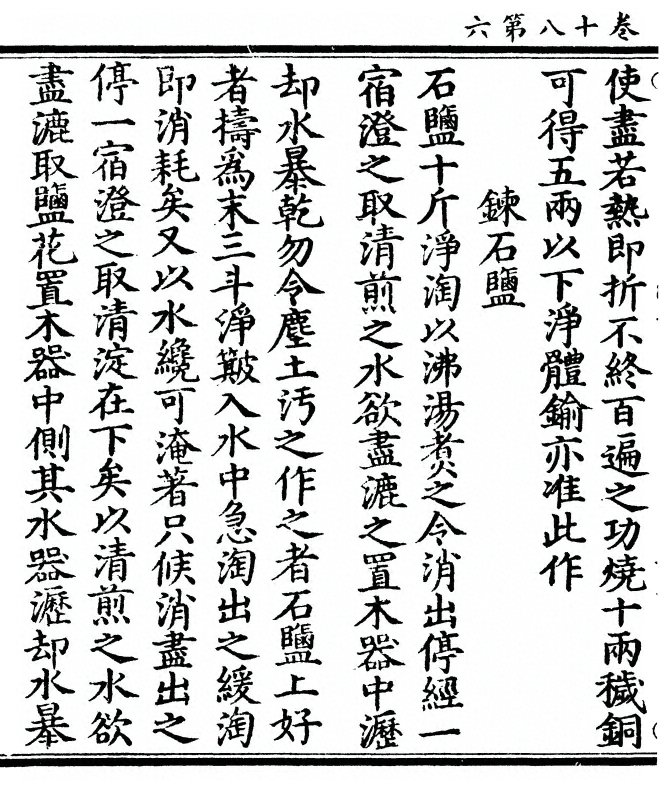 卷十八第六
使盡若熱即折不終百遍之功燒十兩穢銅
可得五兩以下淨體鍮亦准此作
鍊石鹽
石鹽十斤淨淘以沸湯煮之令消出停經一
宿澄之取清煎之水欲盡漉之置木器中瀝
却水暴乾勿令塵土污之作之者石鹽上好
者擣為末三斗淨簸入水中急淘出之緩淘
即消耗矣又以水纔可淹著只候消盡出之
停一宿澄之取清淀在下矣以清煎之水欲
盡漉取鹽花置木器中側其水器瀝却水暴